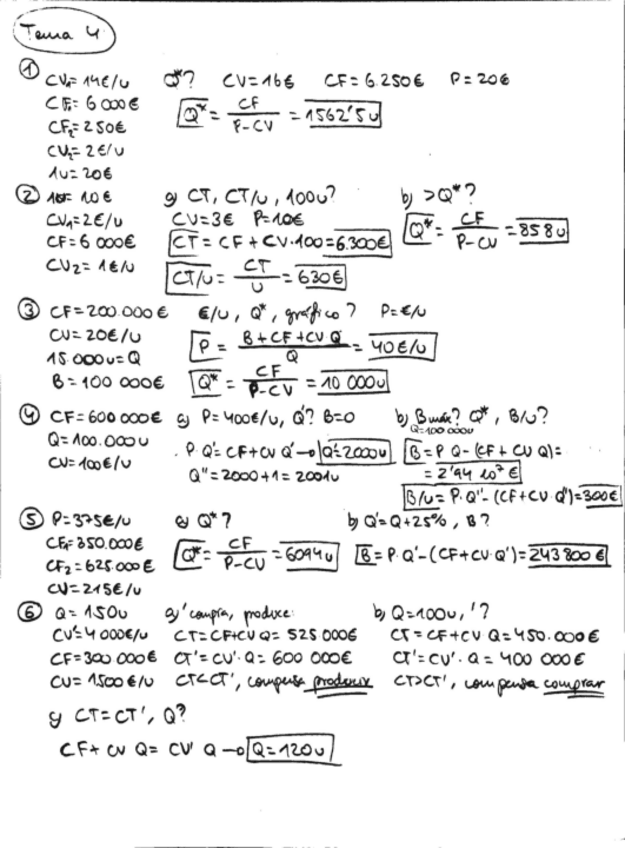 Tema 4
① CV₁=14€/u Q*? CV=16€ CF=6.250€ P=20€
CF₁=6 000€ Q* = CF / P-CV = 1562'5u
CF₂=250€
CV₂=2€/u
1u=20€
② 1u=10€ a) CT, CT/u, 100u? b) >Q*?
CV₁=2€/u CV=3€ P=10€ Q* = CF / P-CV = 858u
CF=6 000€ CT = CF + CV·100 = 6.300€
CV₂=1€/u CT/u = CT / u = 630€
③ CF=200.000€ €/u, Q*, gráfico? P=€/u
CV=20€/u P = B+CF+CV Q / Q = 40€/u
15.000u=Q
B=100 000€ Q* = CF / P-CV = 10 000u
④ CF=600 000€ a) P=400€/u, Q'? B=0 b) Bmáx? Q*, B/u?
Q=100.000u
Q=100.000u P·Q'=CF+CV Q' → Q'=2000u B = P Q-(CF+CV Q)=
CV=100€/u Q''=2000+1=2001u = 2'94 10⁷€
B/u = P·Q''-(CF+CV·Q'')=300€
⑤ P=375€/u a) Q*? b) Q'=Q+25%, B?
CF₁=350.000€ Q* = CF / P-CV = 6094u B = P·Q'-(CF+CV·Q')=243 800€
CF₂=625.000€
CV=215€/u
⑥ Q=150u a) ¿compra, produce? b) Q=100u, '?
CV'=4 000€/u CT=CF+CV Q=525.000€ CT=CF+CV Q=450.000€
CF=300 000€ CT'=CV'·Q=600 000€ CT'=CV'·Q=400 000€
CV=1500€/u CT<CT', compensa producir CT>CT', compensa comprar
c) CT=CT', Q?
CF+CV Q=CV' Q → Q=120u